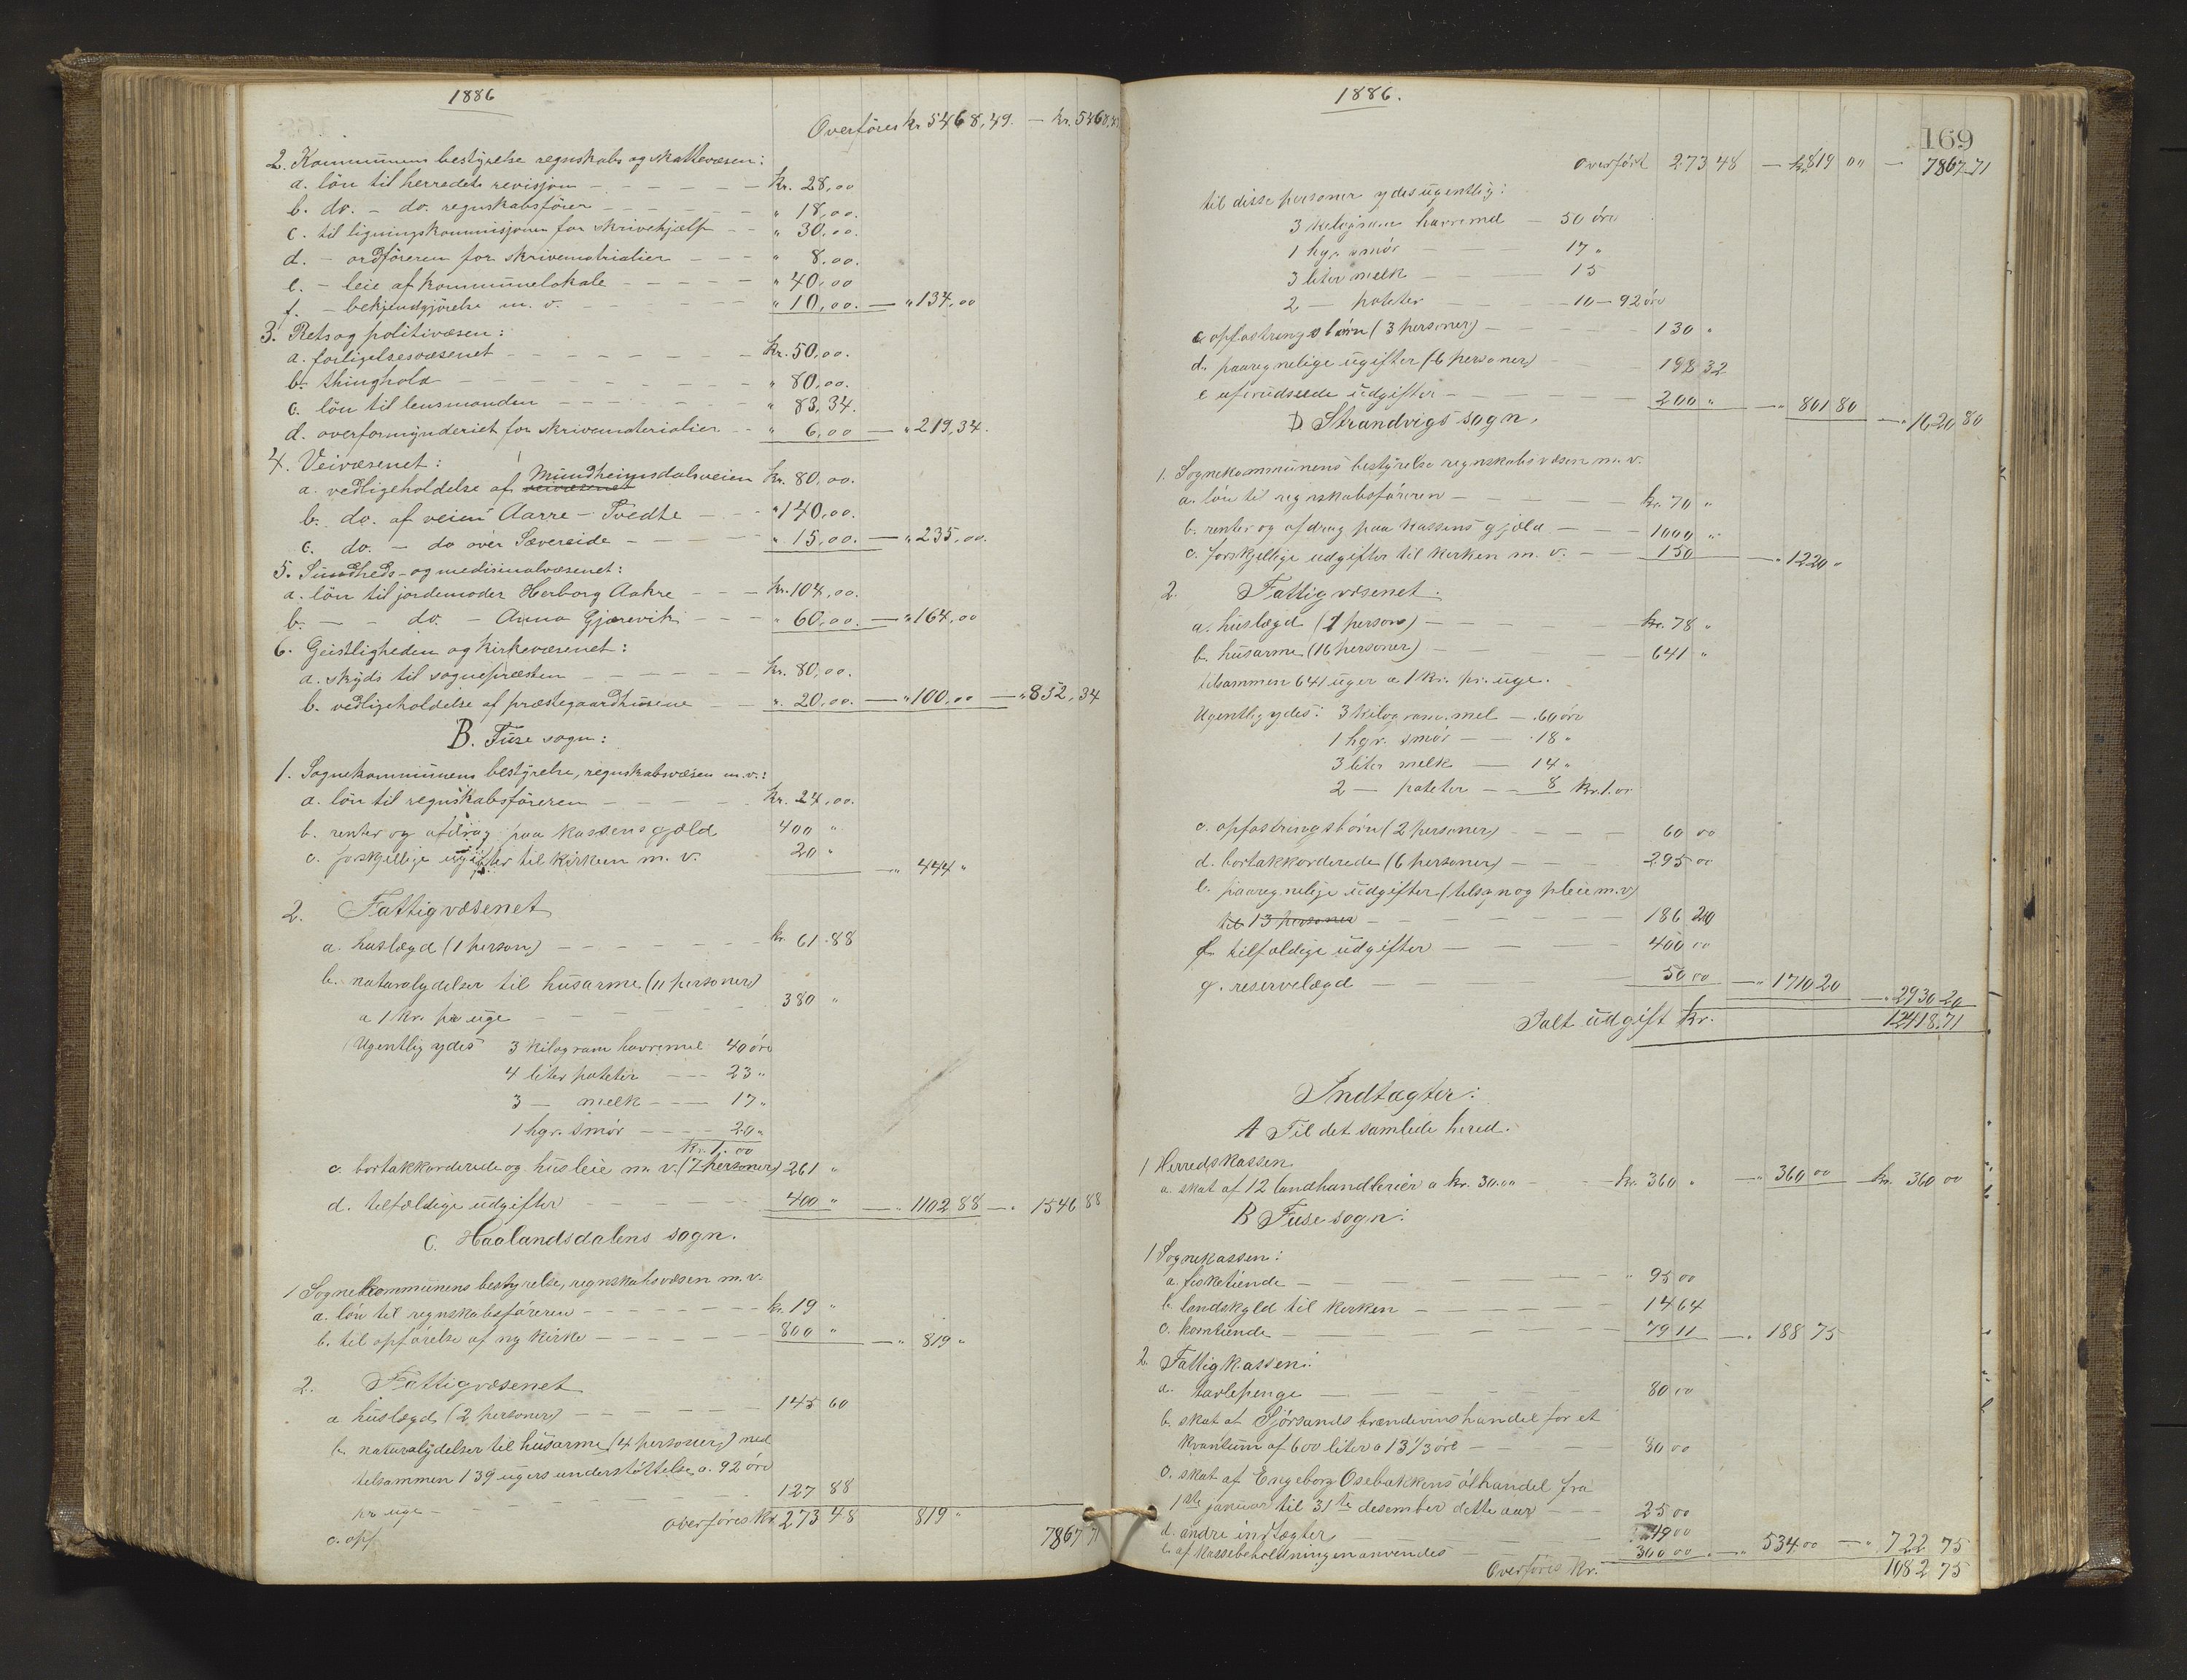 1886
Overføres kr 5468,49. — kr. 5468,49
2. Kommunens bestyrelse regnskabs og skattevæsen:
a. løn til herredets revisjon — kr. 28,00
b. do. – do. regnskabsfører — " 18,00.
c. til ligningskommisjonen for skrivehjælp — " 30,00.
d. – ordføreren for skrivematrialier — " 8,00.
e. – leie af kommunelokale — " 40,00
f. – bekjendgjørelse m. v. — " 10,00. — " 134,00
3. Rets og politivæsen:
a. forligelsesvæsenet — kr. 50,00.
b. thinghold — " 80,00.
c. løn til lensmanden — " 83,34.
d. overformynderiet for skrivematerialier — " 6,00 — " 219,34.
4. Veivæsenet:
a. vedligeholdelse af veivæsenet Mundheimsdalsveien kr. 80,00.
b. do. af veien Aarre – Tvedte — " 140,00.
c. do. – do over Sævereide — " 15,00. — " 235,00.
5. Sundheds- og medisinalvæsenet:
a. løn til jordemoder Herborg Aakre — kr. 104,00.
b. — – do. – Anna Gjærevik — " 60,00. — " 164,00
6. Geistligheden og kirkevæsenet:
a. skyds til sognepræsten — kr. 80,00.
b. vedligeholdelse af præstegaardhusene — " 20,00. — " 100,00 — " 852,34
B. Fuse sogn:
1. Sognekommunens bestyrelse, regnskabsvæsen m.v.:
a. løn til regnskabsføreren — kr. 24,00.
b. renter og afdrag paa kassens gjæld 400 "
c. forskjellige ugifter til kirken m. v. 20 " — " 444 "
2. Fattigvæsenet
a. huslægd (1 person) — kr. 61.88
b. naturalydelser til husarme (11 personer)
a 1 kr. pr uge — 380 "
Ugentlig ydes 3 kilogram havremel 40 øre
4 liter poteter — 23 "
3 — melk — 17 "
1 hgr. smør — 20 "
kr. 1.00
c. bortakkorderede og husleie m. v. (7 personer) 261 "
d. tilfældige udgifter — 400 " — " 1102 88 — " 1546 88
C. Haalandsdalens sogn.
1 Sognekommunens bestyrelse, regnskabsvæsen m. v.
a. løn til regnskabsføreren — kr. 19 "
b. til opførelse af ny kirke — 800 " — " 819 "
2. Fattigvæsenet
a huslægd (2 personer) — 145 60
b. naturalydelser til husarme (4 personer) med
tilsammen 139 ugers understøttelse a. 92 øre
pr uge — 127 88
c. opf overføres kr. 273 48 819 " 7867 71
1886.
169
Overført 273 48 — kr. 819 00 — 7867.71
til disse personer ydes ugentlig:
3 kilogram havremel — 50 øre
1 hgr. smør — 17 "
3 liter melk — 15
2 — poteter — 10 – 92 øre
c opfostringsbørn (3 personer) — 130 "
d. paaregnelige ugifter (6 personer) — 198 32
e uforudseede udgifter — 200 " — " 801 80 — " 1620 80
D Strandvigs sogn.
1. Sognekommunens bestyrelse regnskabsvæsen m. v.
a. løn til regnskabsføreren — kr. 70 "
b. renter og afdrag paa kassens gjæld — 1000 "
c. forskjellige udgifter til kirken m. v. — 150 — " 1220 "
2. Fattigvæsenet.
a. huslægd (1 person) — kr. 78 "
b. husarme (16 personer) — 641 "
tilsammen 641 uger a 1 kr. pr. uge.
Ugentlig ydes: 3 kilogram. mel — 60 øre
1 hgr. smør — 18 "
3 liter melk — 14 "
2 — poteter — 8 kr. 1.00
c. opfostringsbørn (2 personer) — 60 00
d. bortakkorderede (6 personer) — 295 00
e. paaregnelige udgifter (tilsyn og pleie m.v)
til 13 personer — 186 20
f. tilfældige udgifter — 400 00
g. reservelægd — 50 00 — " 1710 20 — " 2930 20
Ialt udgift kr. 12418.71
Indtægter:
A Til det samlede hered.
1 Herredskassen
a. skat af 12 landhandlerier a kr. 30.00 — kr. 360 " — " 360 00 — kr. 360 00
B Fuse sogn:
1 Sognekassen:
a. fisketiende — " 95 00
b. landskyld til kirken — 14 64
c. korntiende — 79 11 — " 188 75
2. Fattigkassen:
a. tavlepenge — 80 00
b. skat af Sjørsands brændevinshandel for et
kvantum af 600 liter a 13 1/3 øre — 80 00
c. skat af Engeborg Osebakkens ølhandel fra
1ste januar til 31te desember dette aar — 25 00
d. andre indtægter — 49 00
e. af kassebeholdningen anvendes — 300 00 — " 534.00 — " 722 75
Overføres kr. 1082 75